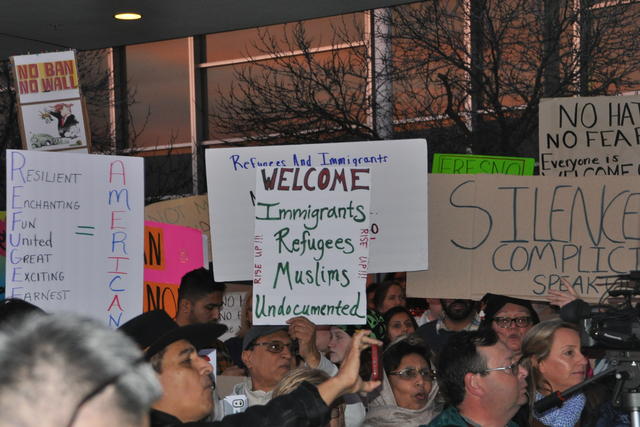 NO BAN
NO WALL
RESILIENT
ENCHANTING
FUN
UNITED
GREAT
EXCITING
EARNEST
=
AMERICAN
NO
Refugees And Immigrants
WELCOME
Immigrants
Refugees
Muslims
Undocumented
RISE UP!!!
RISE UP!!!
FRESNO
NO HAT
NO FEAR
Everyone is
WELCOME
SILENCE
COMPLICIT
SPEAK